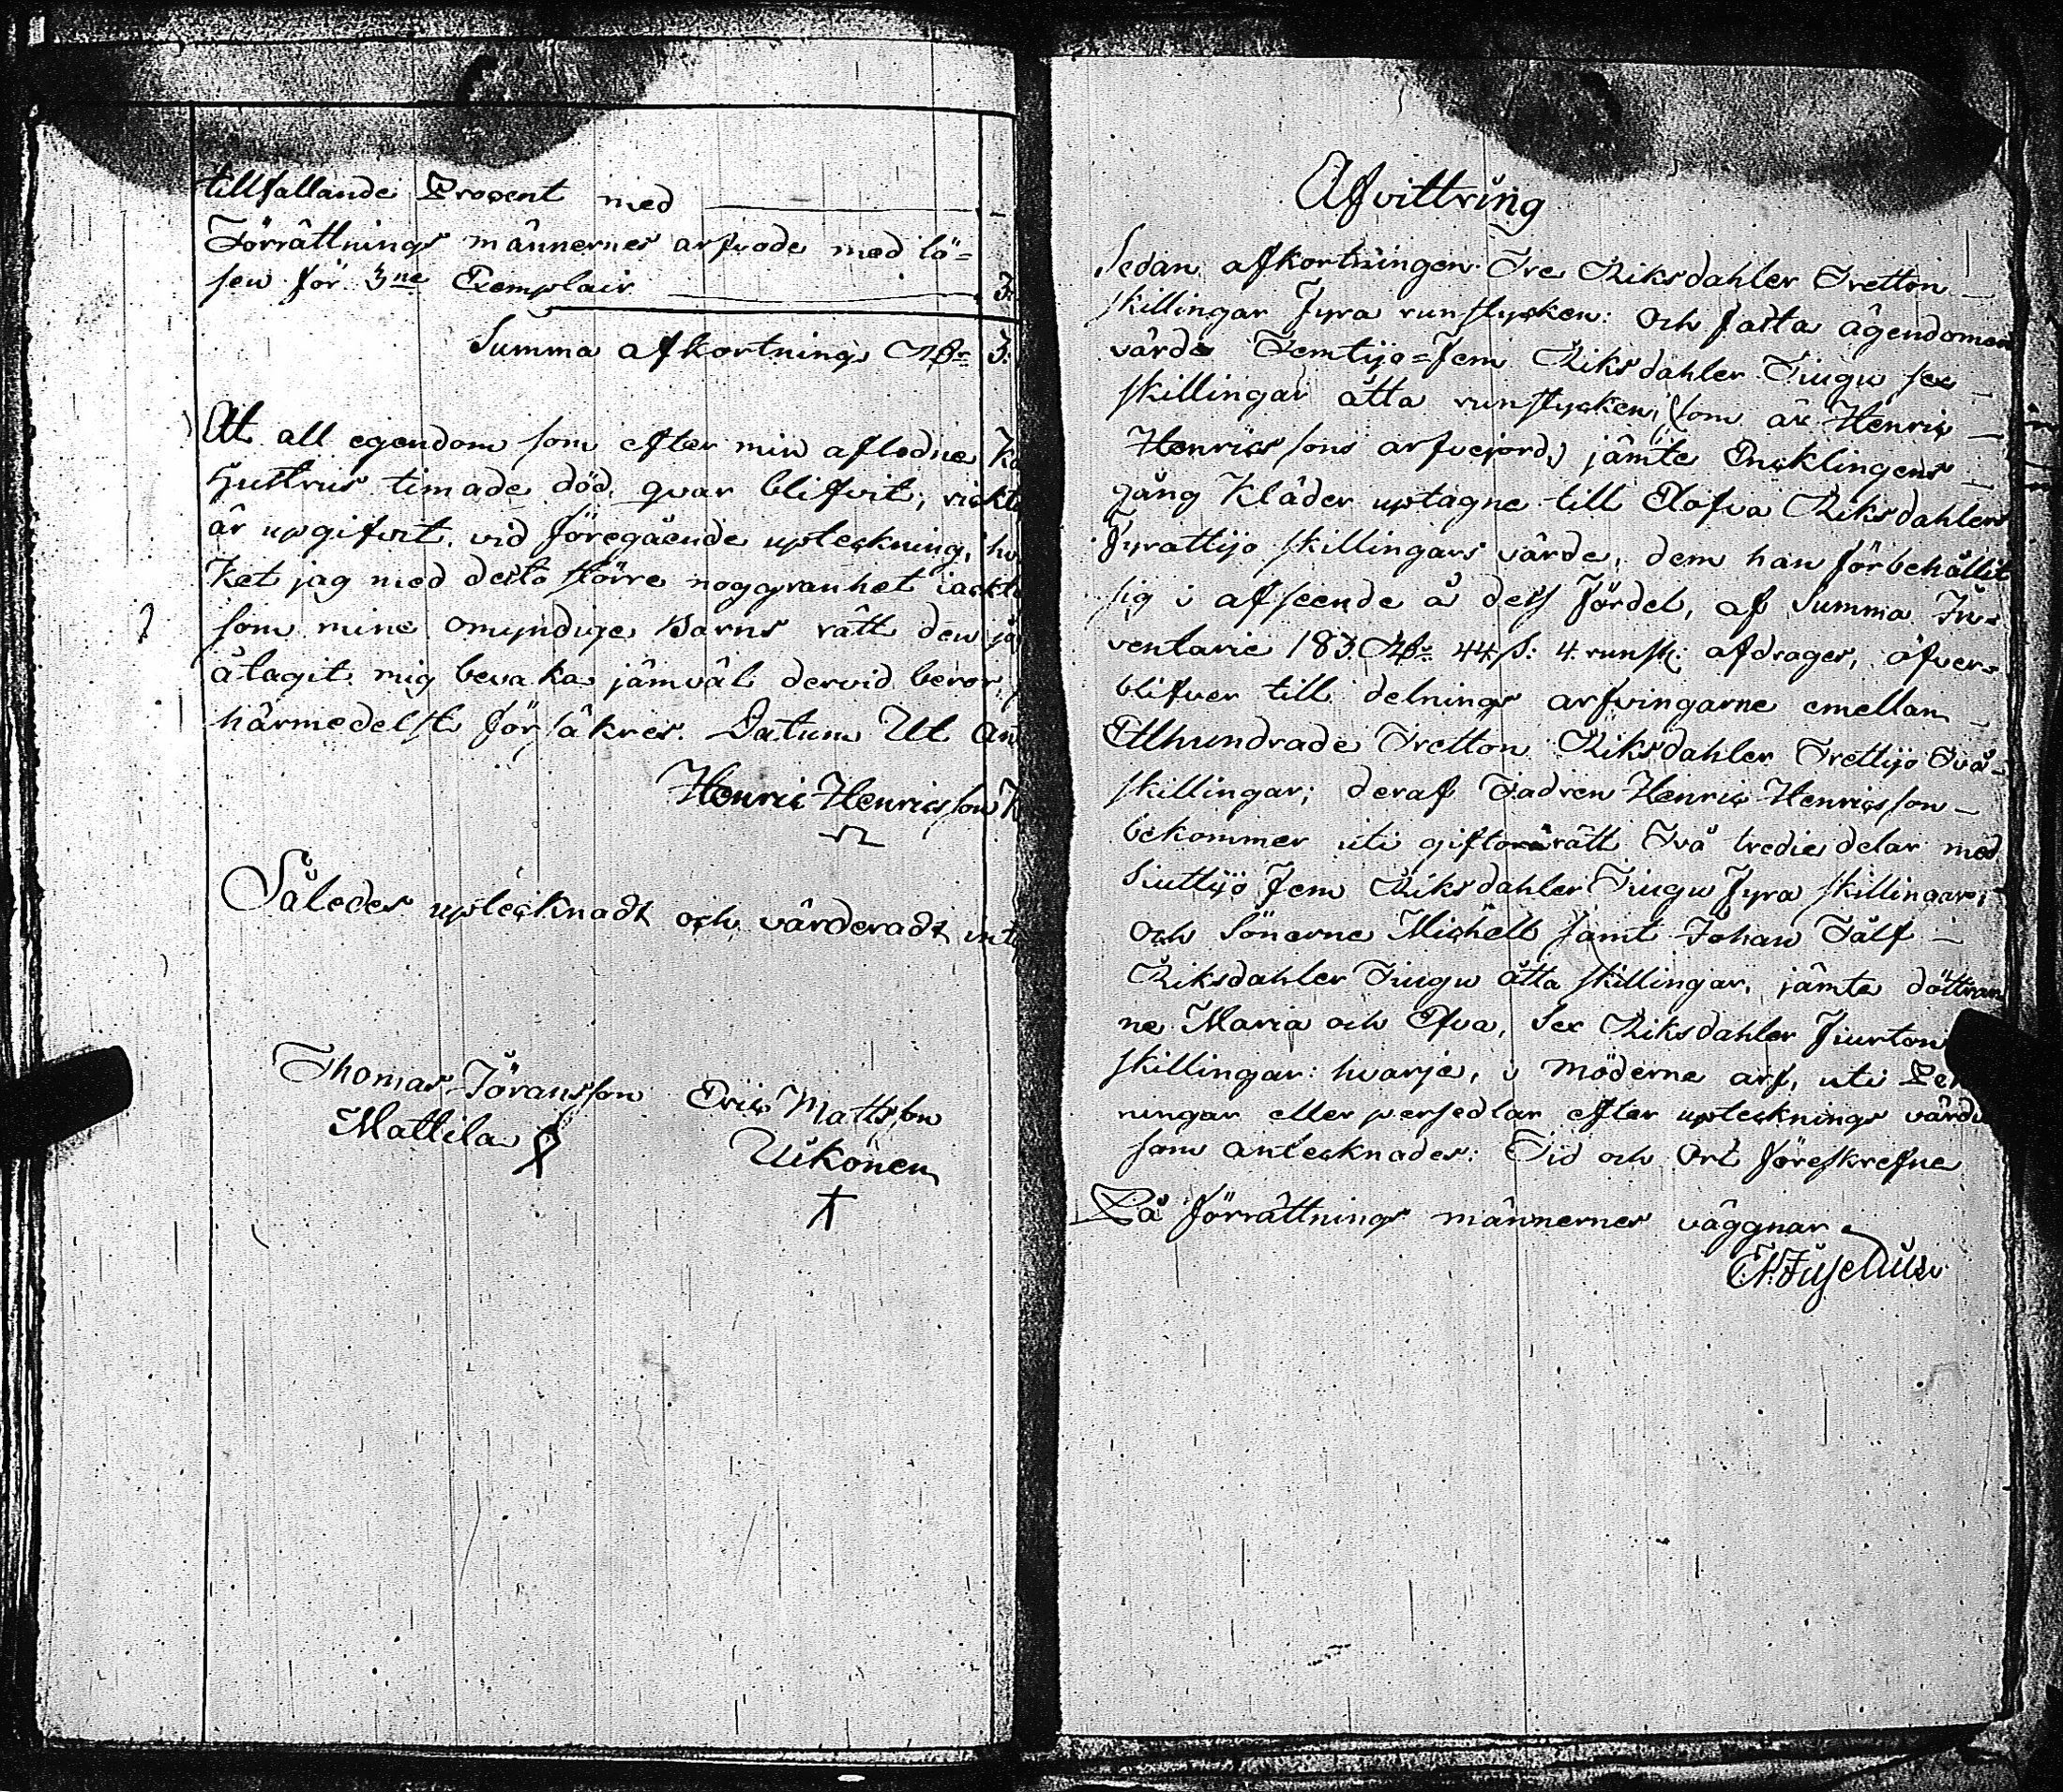 tillfallande Procent med
Förrättnings männernes arfvode med lö=
sen för 3ne Exemplair 3.
Summa afkortnings Rdr 3.
Att all egendom som efter min aflednе
Hustrus timade död, qvar blifvit, rickt
är upgifvit vid föregående upteckning, hv
ket jag med desto större noggranhet iackt
som mine omyndige Barns rätt den
ålagit mig bevaka jämväl dervid beror,
härmedelst försäkres. Datum Ut An
Henric Henricsson K
Således uptecknadt och värderadt int
Thomas Jöransson Eric Mattsson
Mattila Uikonen
Afvittring
Sedan afkortningen Tre Riksdahler Tretton
skillingar fyra runstycken: och fasta ägendomen
värde Femtijo=fem Riksdahler Tiugu sex
skillingar åtta runstycken, (som är Henric
Henricssons arfvejord,) jämte Encklingens
gång Kläder uptagne till Elofva Riksdahlers
Fyratijo skillingars värde, dem han förbehållit
sig i afseende å dess fördel, af Summa In=
ventarie 183. Rdr 44 s: 4. runst: afdrages, öfver=
blifver till delnings arfvingarne emellan
Etthundrade Tretton Riksdahler Trettijo Två
skillingar; deraf Fadren Henric Henricsson
bekommer uti giftorätt Två tredie delar med
Siuttijo fem Riksdahler Tiugu fyra skillingar;
och Sönerne Michell samt Johan Tålf
Riksdahler Tiugu åtta skillingar, jämte döttrar
ne Maria och Efva, Sex Riksdahler fiurton
skillingar: hvarje, i Möderne arf, uti Pen
ningar eller persedlar efter upteckninngs värde
som antecknades: Tid och Ort föreskrefne
På förrättnings männernes väggnar